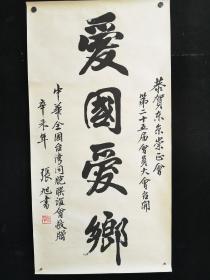 恭賀东京崇正會
第二十五届會員大會召開
愛國愛鄉
中華全國台灣同胞联谊會敬贈
辛未年
張旭書